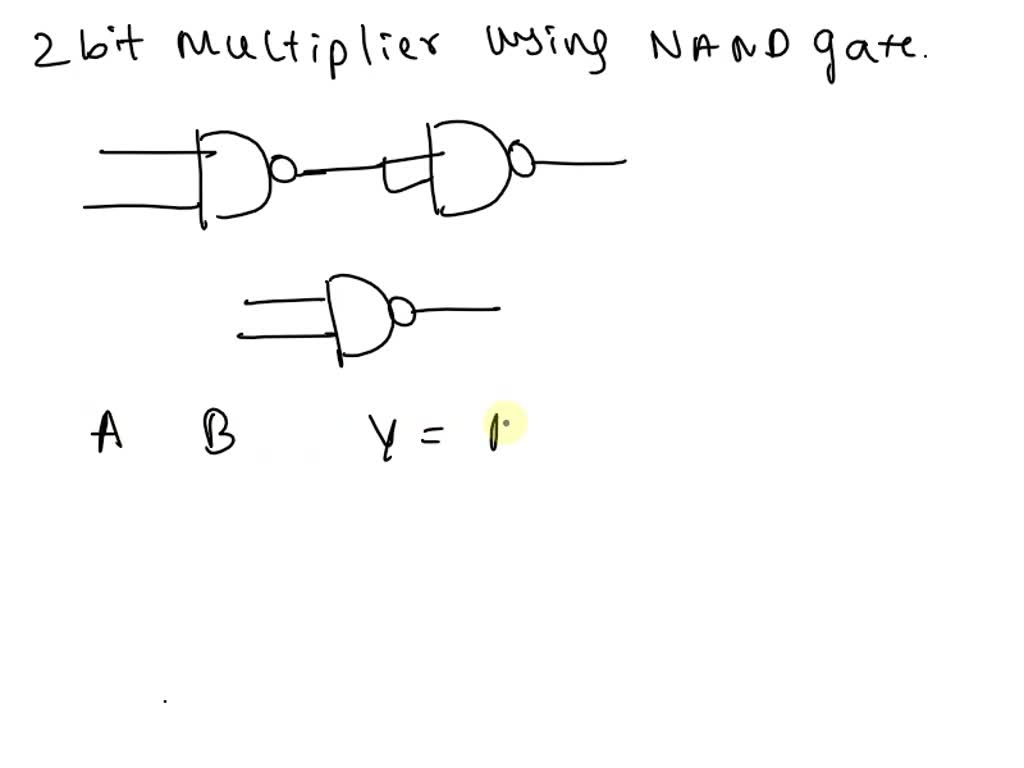 2 bit Multiplier using NAND gate.
A B Y =